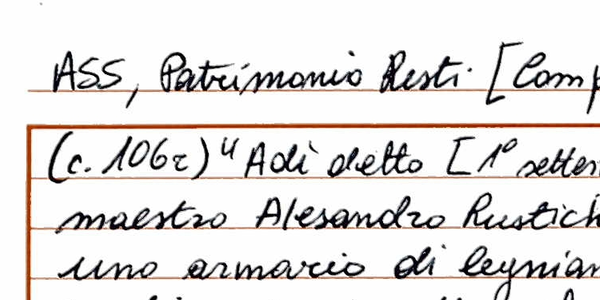 ASS, Patrimonio Resti. [Comp
(c. 106r) "Adì detto [1° settem
maestro Alesandro Rustich
uno armario di legniam